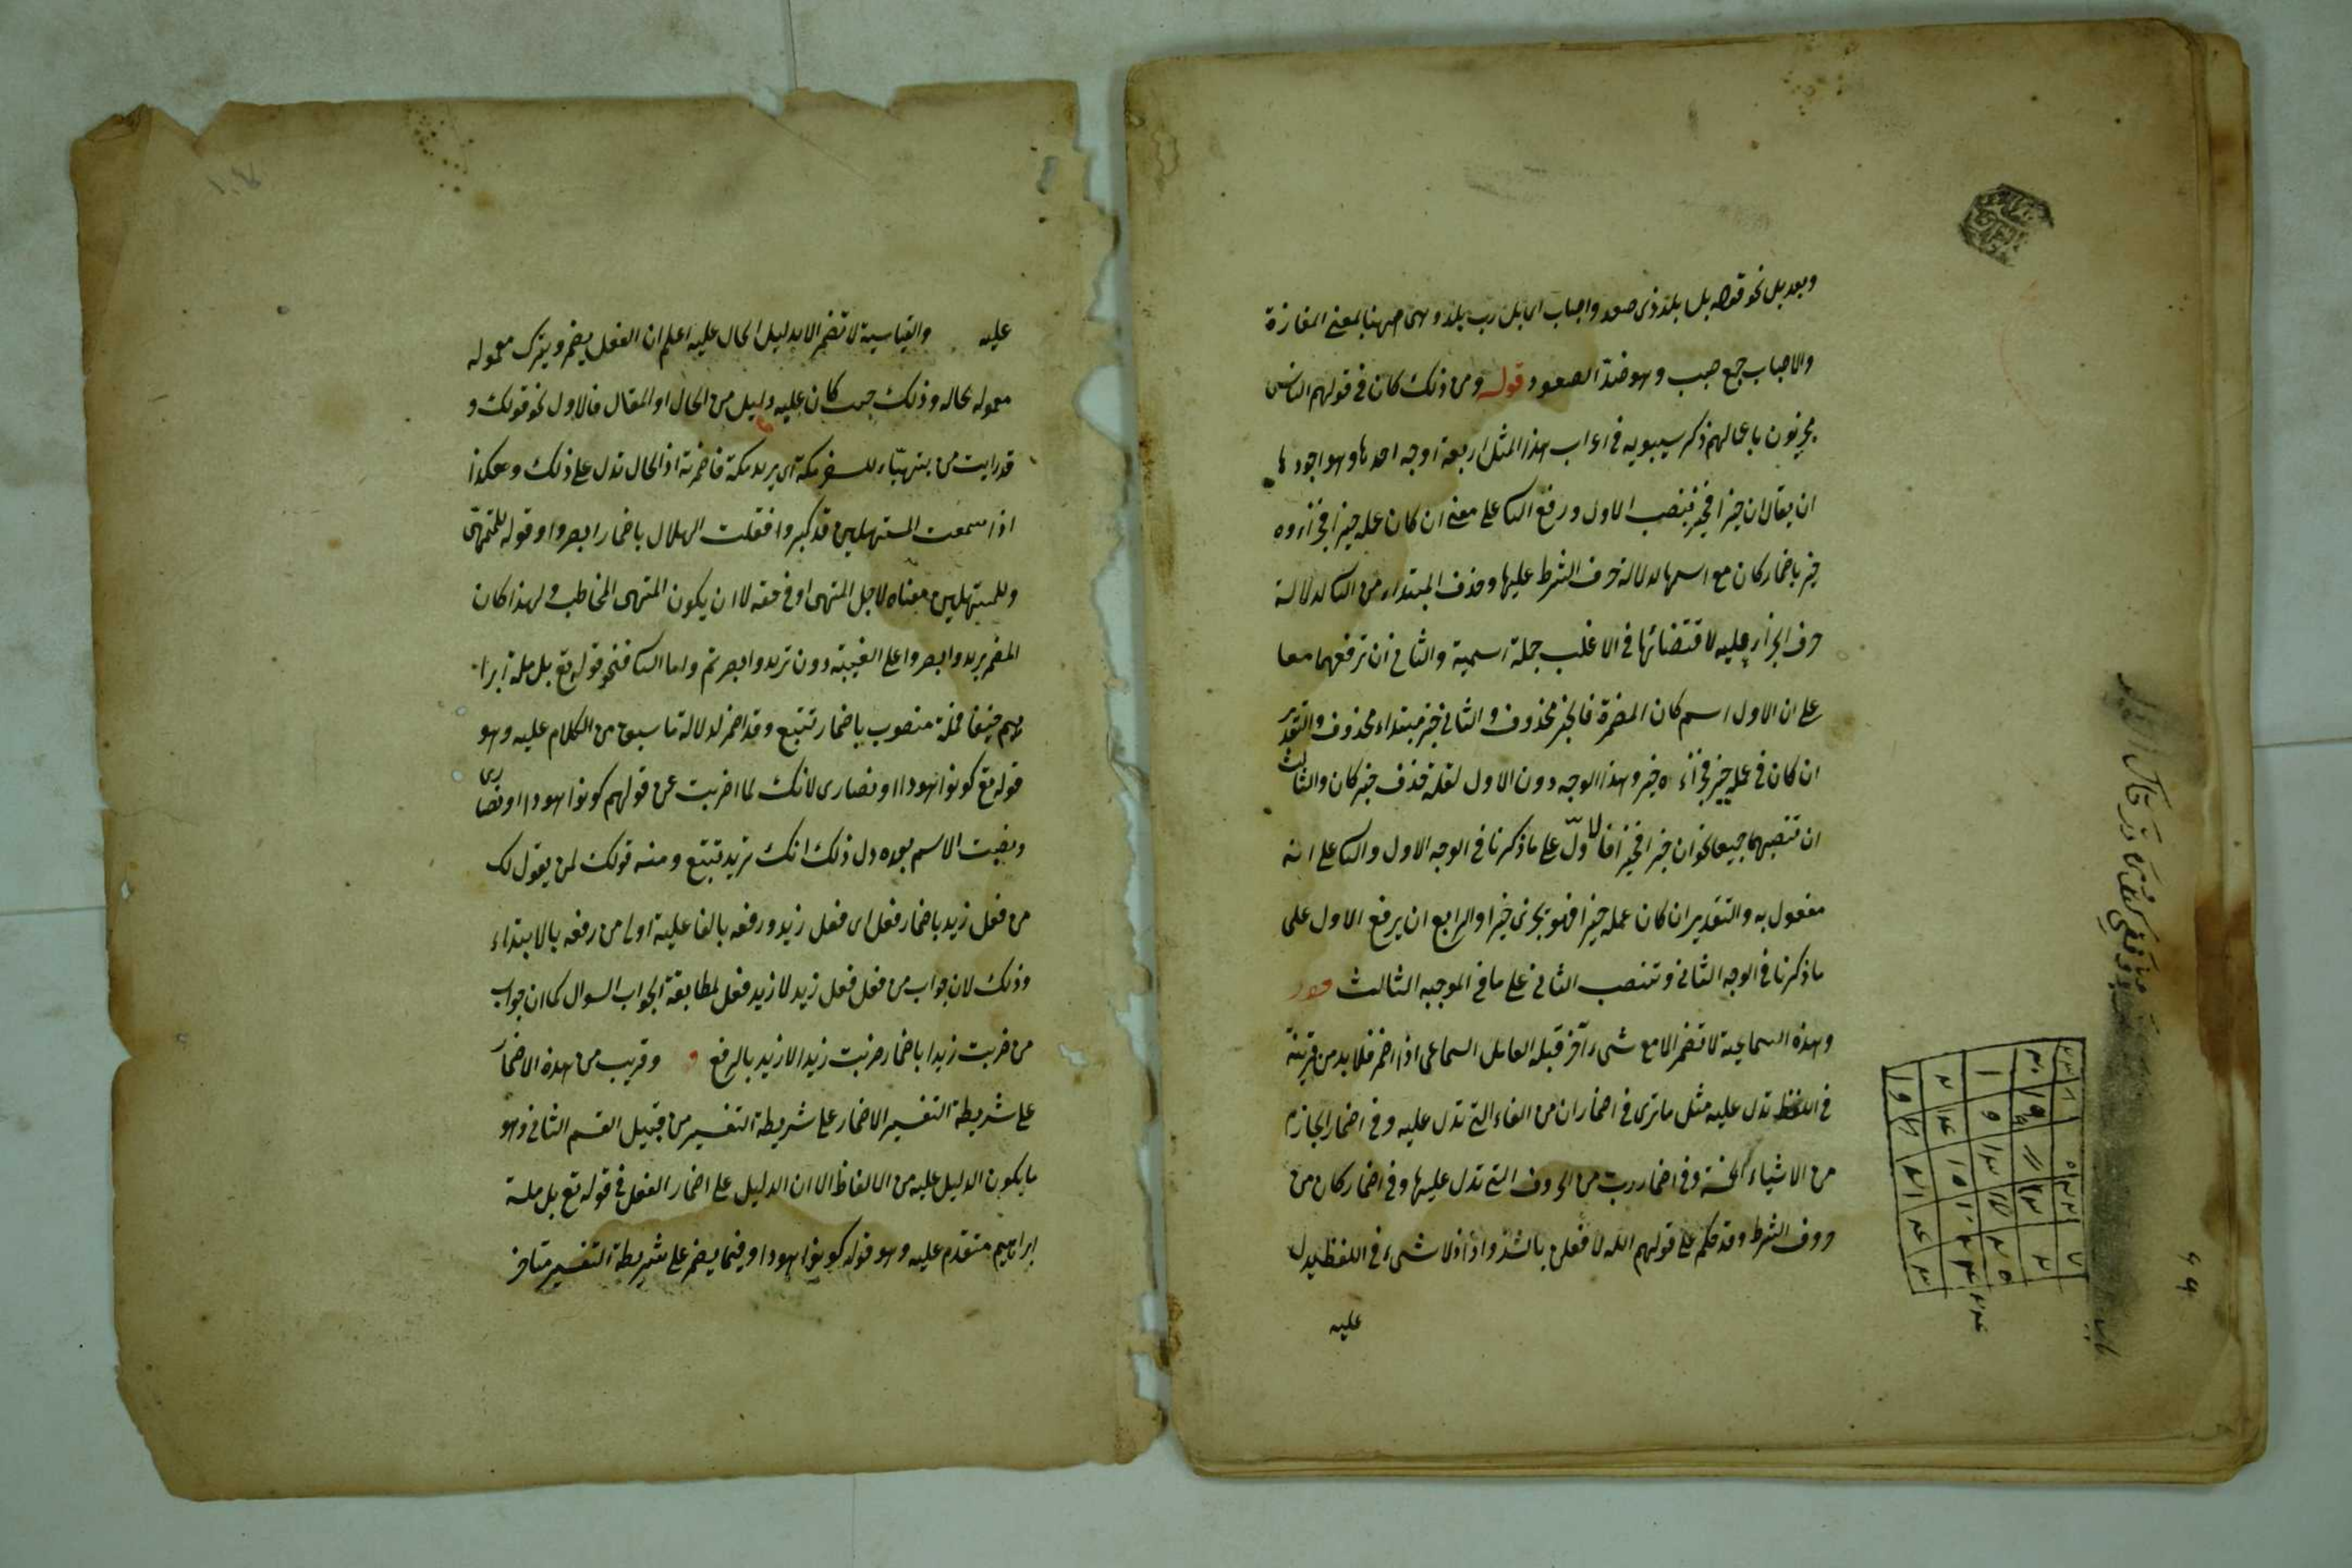 وبعد بل نحو قوله بل بلد ذى صعد واصباب اى بل رب بلد وهى ههنا بمعنى المفازة
والاصباب جمع صبب وهو ضد الصعود قوله ومن ذلك كان فى قولهم الناس
مجزيون باعمالهم ذكر سيبويه فى اعراب هذا المثل اربعة اوجه احدها وهو اجودها
ان يقال ان خيرا فخير فينصب الاول ورفع الثا على معنى ان كان عمله خيرا فجزاءوه
خير باضمار كان مع اسمها لدلالة حرف الشرط عليها وحذف المبتداء من الثا لدلالة
حرف الجزاء عليه لاقتضائها فى الاغلب جملة اسمية والثانى ان ترفعهما معا
على ان الاول اسم كان المضمرة فالخبر محذوف والثانى خبر مبتداء محذوف والتقدير
ان كان فى عمله خير فجزاءه خير وهذا الوجه دون الاول لقلة حذف خبر كان والثالث
ان تنصبهما جميعا نحو ان خيرا فخيرا فالاول على ما ذكرنا فى الوجه الاول والثا على انه
مفعول به والتقدير ان كان عمله خيرا فهو يجزى خيرا والرابع ان يرفع الاول على
ما ذكرنا فى الوجه الثانى وتنصب الثانى على ما فى الوجه الثالث قوله
وهذه السماعية لا تضمر الا مع شىء آخر قبله العامل السماعى اذا اضمر فلا بد من قرينة
فى اللفظ تدل عليه مثل ما ترى فى اضمار ان من الفاء التى تدل عليه وفى اضمار الجازم
من الاشياء الخمسة وفى اضمار رب من الحروف التى تدل عليها وفى اضمار كان من
حروف الشرط وقد حكم على قولهم الله لافعلن بالشذوذ اذ لا شىء فى اللفظ يدل
عليه
٩٩
عليه والقياسية لا تضمر الا بدليل الحال عليه اعلم ان الفعل يضمر ويترك معموله
معموله بحاله وذلك حيث كان عليه دليل من الحال او المقال فالاول نحو قولك و
قد رايت من يتهيّاء للسفر مكة اى يريد مكة فاضمرته اذ الحال تدل على ذلك وهكذا
اذا سمعت المستهلين قد كبروا فقلت الهلال باضمار ابصروا وقوله للمتهيّى
وللمستهلين معناه لاجل المتهيى او فى حقه لا ان يكون المتهيى المخاطب ولهذا كان
المضمر يريد وابصروا على الغيبته دون تريد وابصرتم واما الثا فنحو قوله تع بل ملة ابرا
هيم حنيفا فملة منصوب باضمار نتبع وقد اضمر لدلالة ما سبق من الكلام عليه وهو
قوله تع كونوا هودا او نصارى لانك لما اضربت عن قولهم كونوا هودا او نصارى
ونصبت الاسم بعده دل ذلك انك تريد نتبع ومنه قولك لمن يقول لك
من فعل زيد باضمار فعل اى فعل زيد ورفعه بالفاعلية اولى من رفعه بالابتداء
وذلك لان جواب من فعل فعل زيد لا زيد فعل لمطابقة الجواب السوال كما ان جواب
من ضربت زيدا باضمار ضربت زيدا لا زيد بالرفع و وقريب من هذه الاضمار
على شريطة التفسير الاضمار على شريطة التفسير من قبيل القسم الثانى وهو
ما يكون الدليل عليه من الالفاظ الا ان الدليل على اضمار الفعل فى قوله تع بل ملة
ابراهيم متقدم عليه وهو قوله كونوا هودا وفيما يضمر على شريطة التفسير متاخر